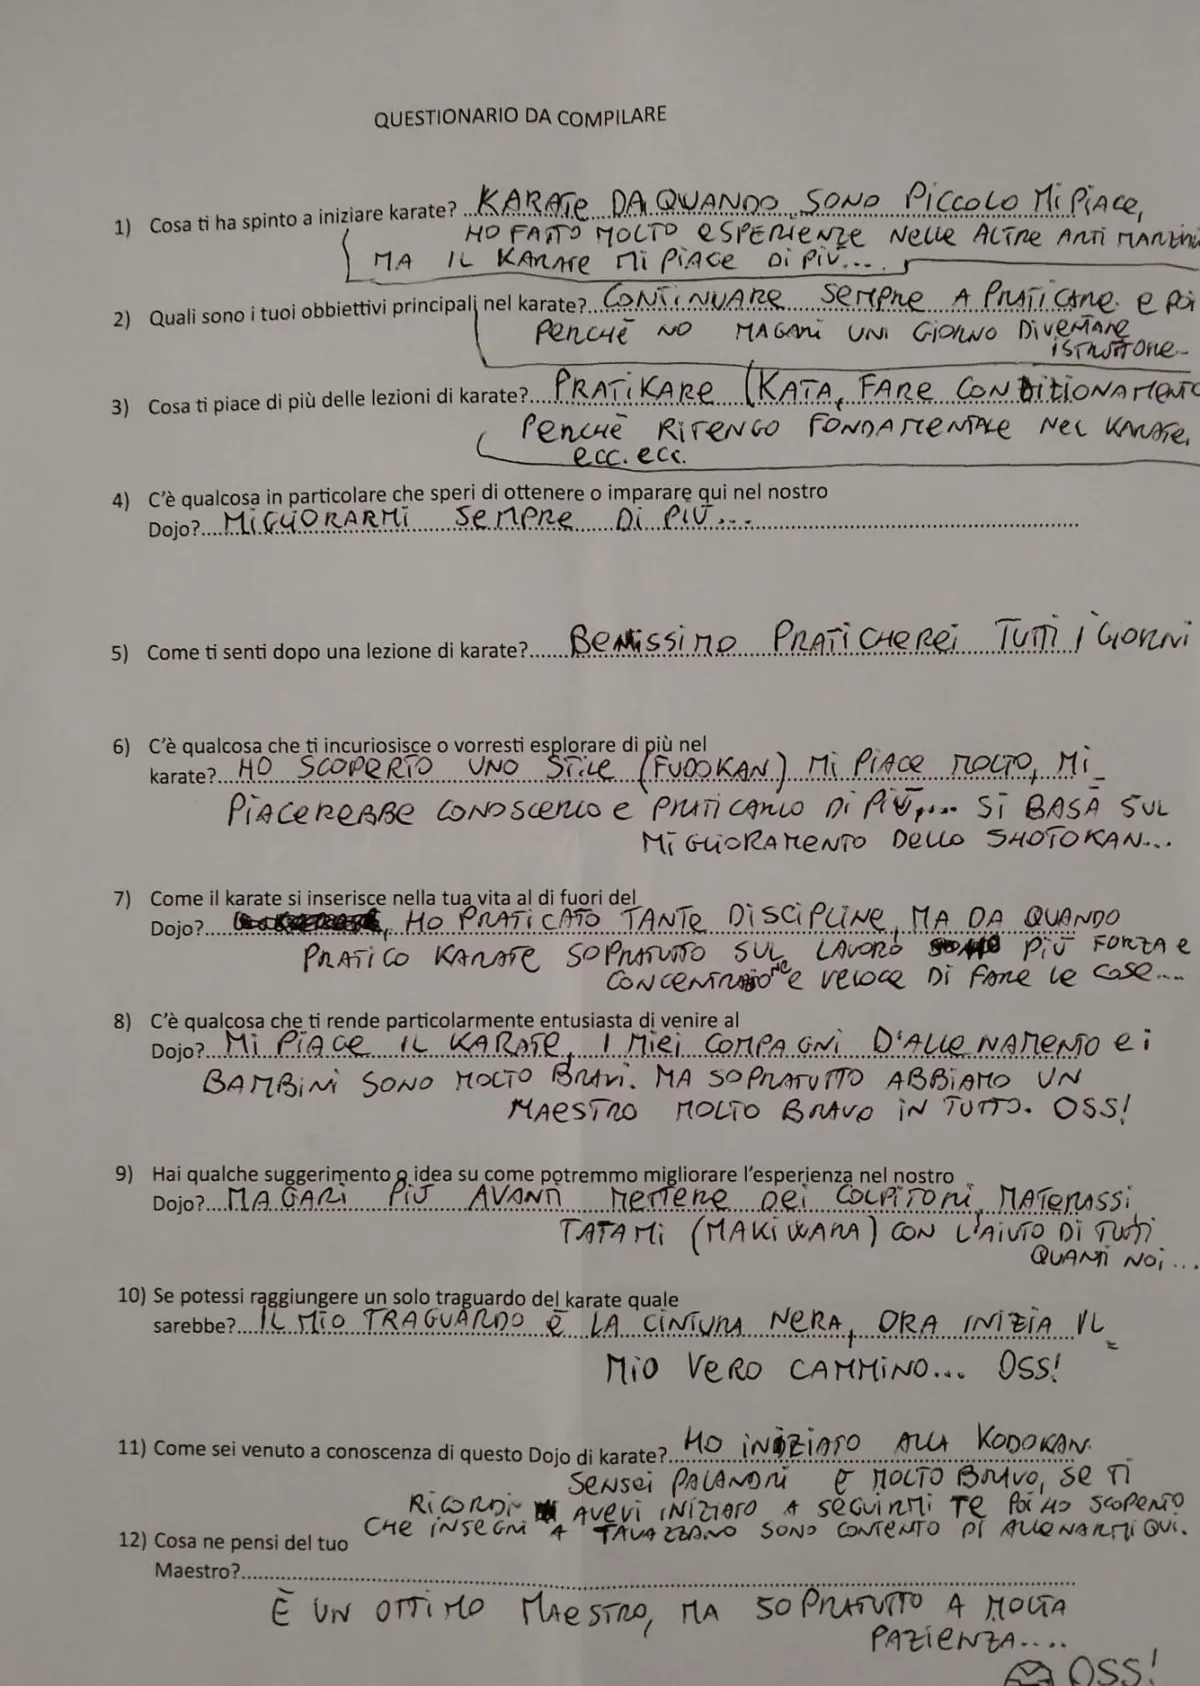 QUESTIONARIO DA COMPILARE
1) Cosa ti ha spinto a iniziare karate? KARATE DA QUANDO SONO PICCOLO MI PIACE,
HO FATTO MOLTO ESPERIENZE NELLE ALTRE ARTI MARZIALI
MA IL KARATE MI PIACE DI PIÙ....
2) Quali sono i tuoi obbiettivi principali nel karate? CONTINUARE SEMPRE A PRATICARE. E POI
PERCHÈ NO MAGARI UNI GIORNO DIVENTARE
ISTRUTTORE..
3) Cosa ti piace di più delle lezioni di karate? PRATIKARE (KATA, FARE CONDITIONAMENTO
PERCHÈ RITENGO FONDAMENTALE NEL KARATE,
ECC. ECC.
4) C'è qualcosa in particolare che speri di ottenere o imparare qui nel nostro
Dojo? MIGLIORARMI SEMPRE DI PIÙ...
5) Come ti senti dopo una lezione di karate? BENISSIMO PRATICHEREI TUTTI I GIORNI
6) C'è qualcosa che ti incuriosisce o vorresti esplorare di più nel
karate? HO SCOPERTO UNO STILE (FUDOKAN) MI PIACE MOLTO, MI
PIACEREBBE CONOSCERLO E PRATICARLO DI PIÙ,... SI BASA SUL
MIGLIORAMENTO DELLO SHOTOKAN...
7) Come il karate si inserisce nella tua vita al di fuori del
Dojo? , HO PRATICATO TANTE DISCIPLINE, MA DA QUANDO
PRATICO KARATE SOPRATUTTO SUL LAVORO PIÙ FORZA E
CONCENTRAZIONE E VELOCE DI FARE LE COSE....
8) C'è qualcosa che ti rende particolarmente entusiasta di venire al
Dojo? MI PIACE IL KARATE, I MIEI COMPAGNI D'ALLENAMENTO E I
BAMBINI SONO MOLTO BRAVI. MA SOPRATUTTO ABBIAMO UN
MAESTRO MOLTO BRAVO IN TUTTO. OSS!
9) Hai qualche suggerimento o idea su come potremmo migliorare l'esperienza nel nostro
Dojo? MAGARI PIÙ AVANTI METTERE DEI COLPITORI, MATERASSI,
TATAMI (MAKIWARA) CON L'AIUTO DI TUTTI
QUANTI NOI...
10) Se potessi raggiungere un solo traguardo del karate quale
sarebbe? IL MIO TRAGUARDO È LA CINTURA NERA, ORA INIZIA IL
MIO VERO CAMMINO... OSS!
11) Come sei venuto a conoscenza di questo Dojo di karate? HO INIZIATO ALLA KODOKAN.
SENSEI PALANDRI E MOLTO BRAVO, SE TI
RICORDI AVEVI INIZIATO A SEGUIRMI TE POI HO SCOPERTO
CHE INSEGNI A TAVAZZANO SONO CONTENTO DI ALLENARMI QUI.
12) Cosa ne pensi del tuo
Maestro?
È UN OTTIMO MAESTRO, MA SOPRATUTTO A MOLTA
PAZIENZA....
OSS!